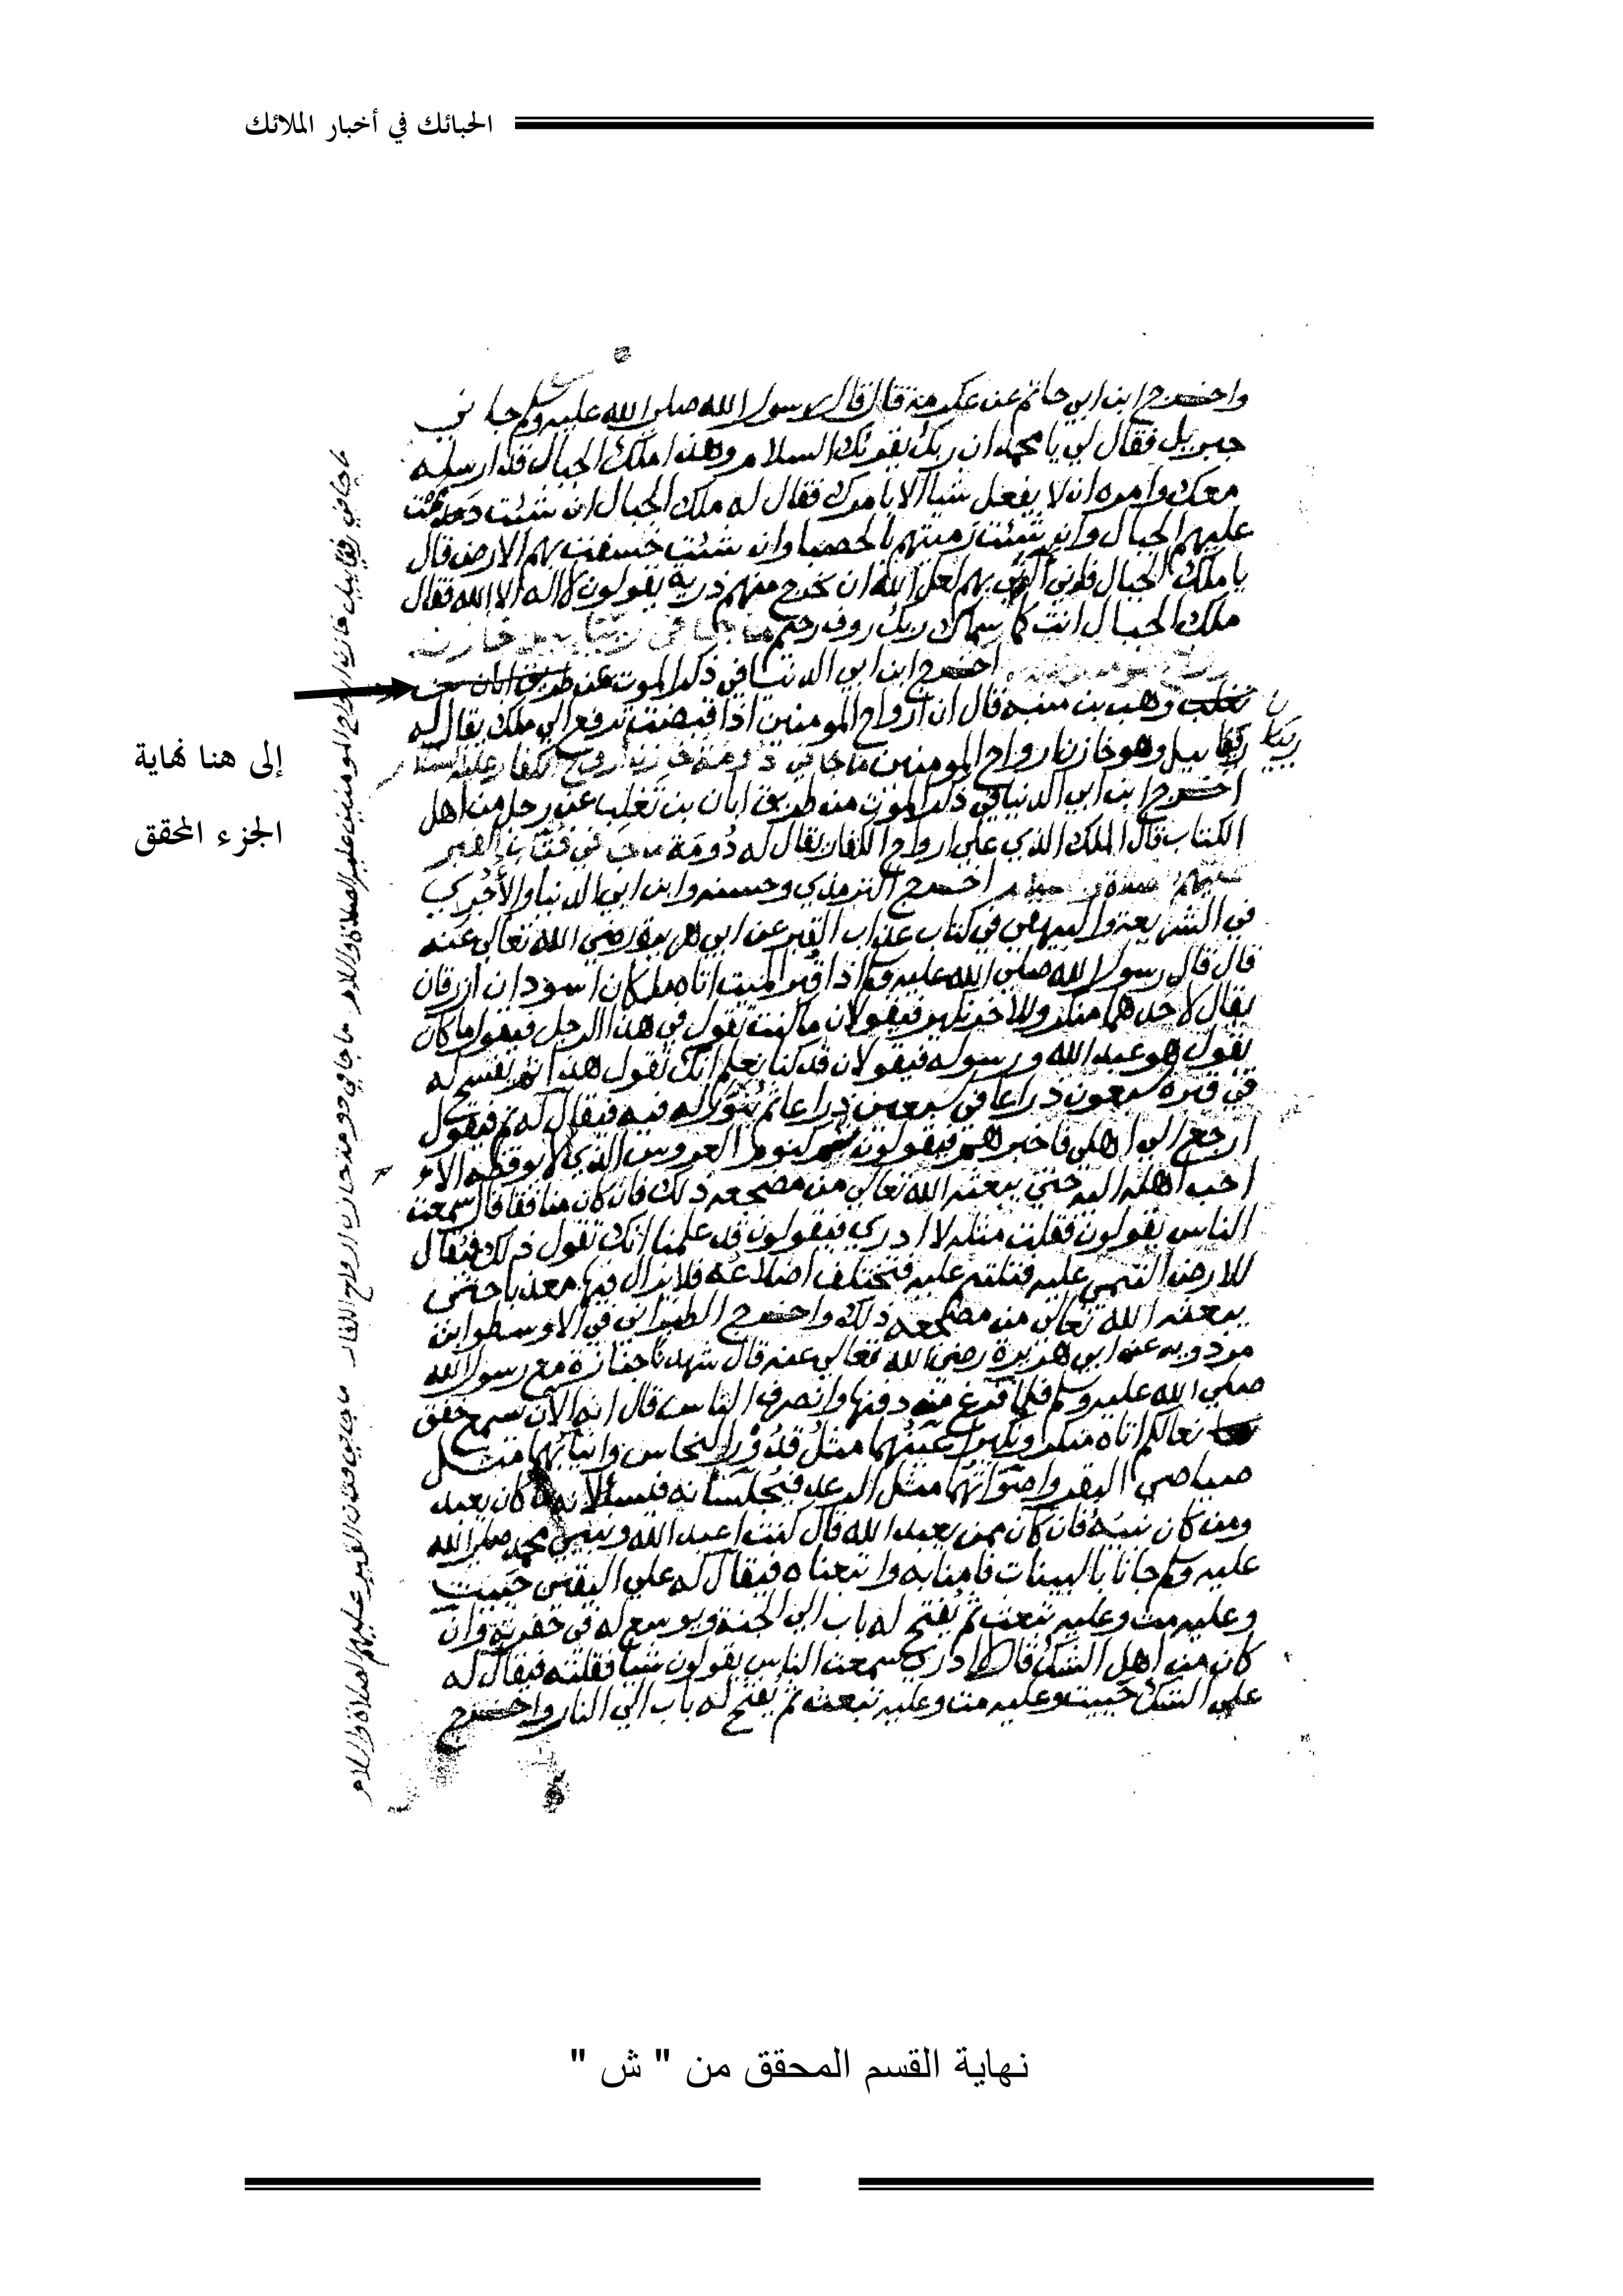 الحبائك في أخبار الملائك
واخرج ابن ابي حاتم عن عكرمة قال قال رسول الله صلى الله عليه وسلم جاني
جبريل فقال لي يا محمد ان ربك يقرئك السلام وهذا ملك الجبال قد ارسله
معك وامره ان لا يفعل شيا الا بامرك فقال له ملك الجبال ان شئت
عليهم الجبال وان شئت رميتهم بالحصبا وان شئت خسفت بهم الارض قال
يا ملك الجبال فاني بهم لعل الله ان يخرج منهم ذرية يقولون لا اله الا الله فقال
ملك الجبال انت كما سماك ربك روف رحيم ما جا في
اخرج ابن ابي الدنيا في ذكر الموت عن طريق ابان بن
تغلب وهب بن منبه قال ان ارواح المومنين اذا قبضت ترفع الى ملك يقال له
وهو خازن ارواح المومنين ما جا في دومة خازن ارواح الكفار عليه السلام
إلى هنا نهاية
الجزء المحقق
اخرج ابن ابي الدنيا في ذكر الموت من طريق ابان بن تغلب عن رجل من اهل
الكتاب قال الملك الذي على ارواح الكفار يقال له دومة ما جا في فتاني القبر
اخرج الترمذي وحسنه وابن ابي الدنيا والاجري
في الشريعة والبيهقي في كتاب عذاب القبر عن ابي هريرة رضي الله تعالى عنه
قال قال رسول الله صلى الله عليه وسلم اذا قبر الميت اتاه ملكان اسودان ازرقان
يقال لاحدهما منكر وللاخر نكير فيقولان ما كنت تقول في هذا الرجل فيقول ما كان
يقول هو عبد الله ورسوله فيقولان قد كنا نعلم انك تقول هذا ثم يفسح له
في قبره سبعون ذراعا في سبعين ذراعا ثم ينور له فيه فيقال له نم فيقول
ارجع الى اهلي فاخبرهم فيقولون نم كنومة العروس الذي لا يوقظه الا
احب اهله اليه حتى يبعثه الله تعالى من مضجعه ذلك فان كان منافقا قال سمعت
الناس يقولون فقلت مثله لا ادري فيقولون قد علمنا انك تقول ذلك فيقال
للارض التئمي عليه فتلتئم عليه فتختلف اضلاعه فلا يزال فيها معذبا حتى
يبعثه الله تعالى من مضجعه ذلك واخرج الطبراني في الاوسط وابن
مردويه عن ابي هريرة رضي الله تعالى عنه قال شهدنا جنازة مع رسول الله
صلى الله عليه وسلم فلما فرغ من دفنها وانصرف الناس قال انه الان يسمع خفق
نعالكم اتاه منكر ونكير اعينهما مثل قدور النحاس وانيابهما مثل
صياصي البقر واصواتهما مثل الرعد فيجلسانه فيسالانه ما كان يعبد
ومن كان نبيه فان كان ممن يعبد الله قال كنت اعبد الله ونبيي محمد صلى الله
عليه وسلم جانا بالبينات فامنا به واتبعناه فيقال له على اليقين حييت
وعليه مت وعليه تبعث ثم يفتح له باب الى الجنة ويوسع له في حفرته وان
كان من اهل الشك قال لا ادري سمعت الناس يقولون شيا فقلته فيقال له
على الشك حييت وعليه مت وعليه تبعث ثم يفتح له باب الى النار واخرج
نهاية القسم المحقق من " ش "